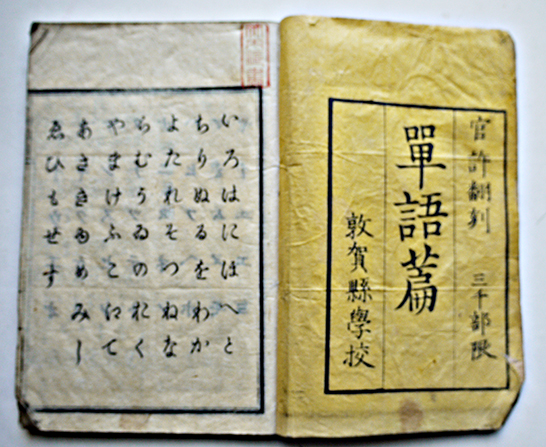 官許翻刻 三千部限
單語篇
敦賀縣學校
いろはにほへと
ちりぬるをわか
よたれそつねな
らむうゐのおく
やまけふこえて
あさきゆめみし
ゑひもせす